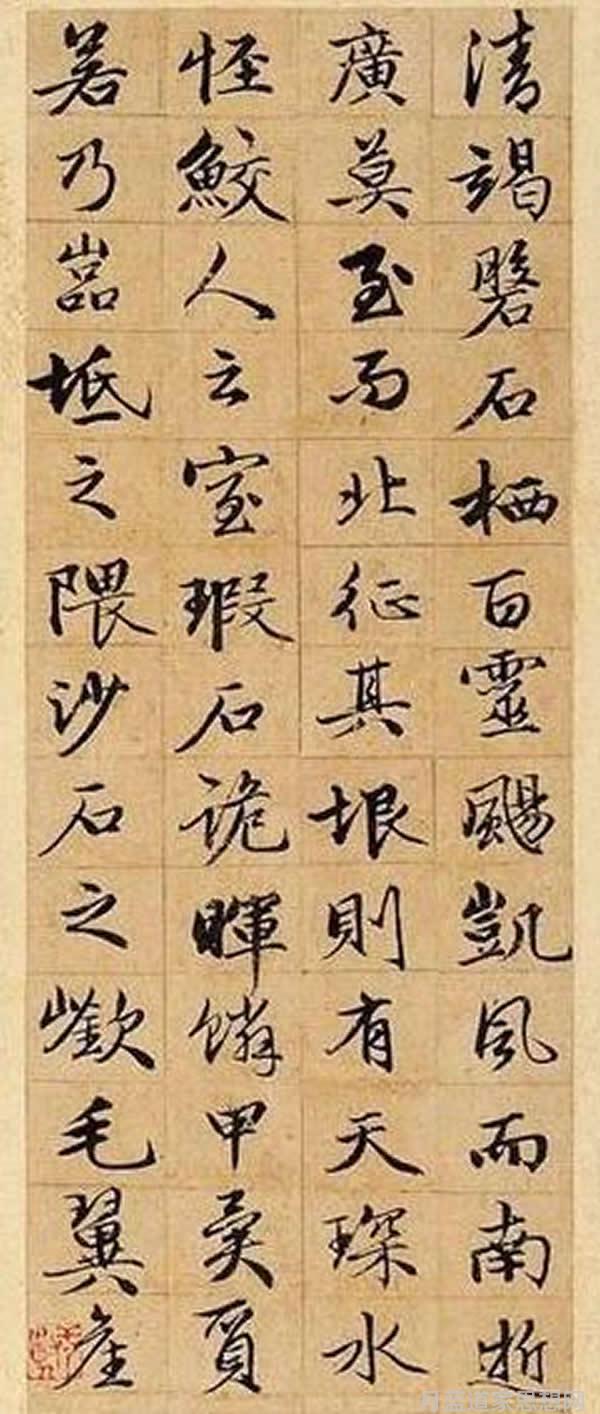 清竭磐石栖百靈颺凱風而南逝
廣莫至而北征其垠則有天琛水
怪鮫人云室瑕石詭暉鱗甲異質
若乃嵓坻之隈沙石之嶔毛翼產
道家思想网